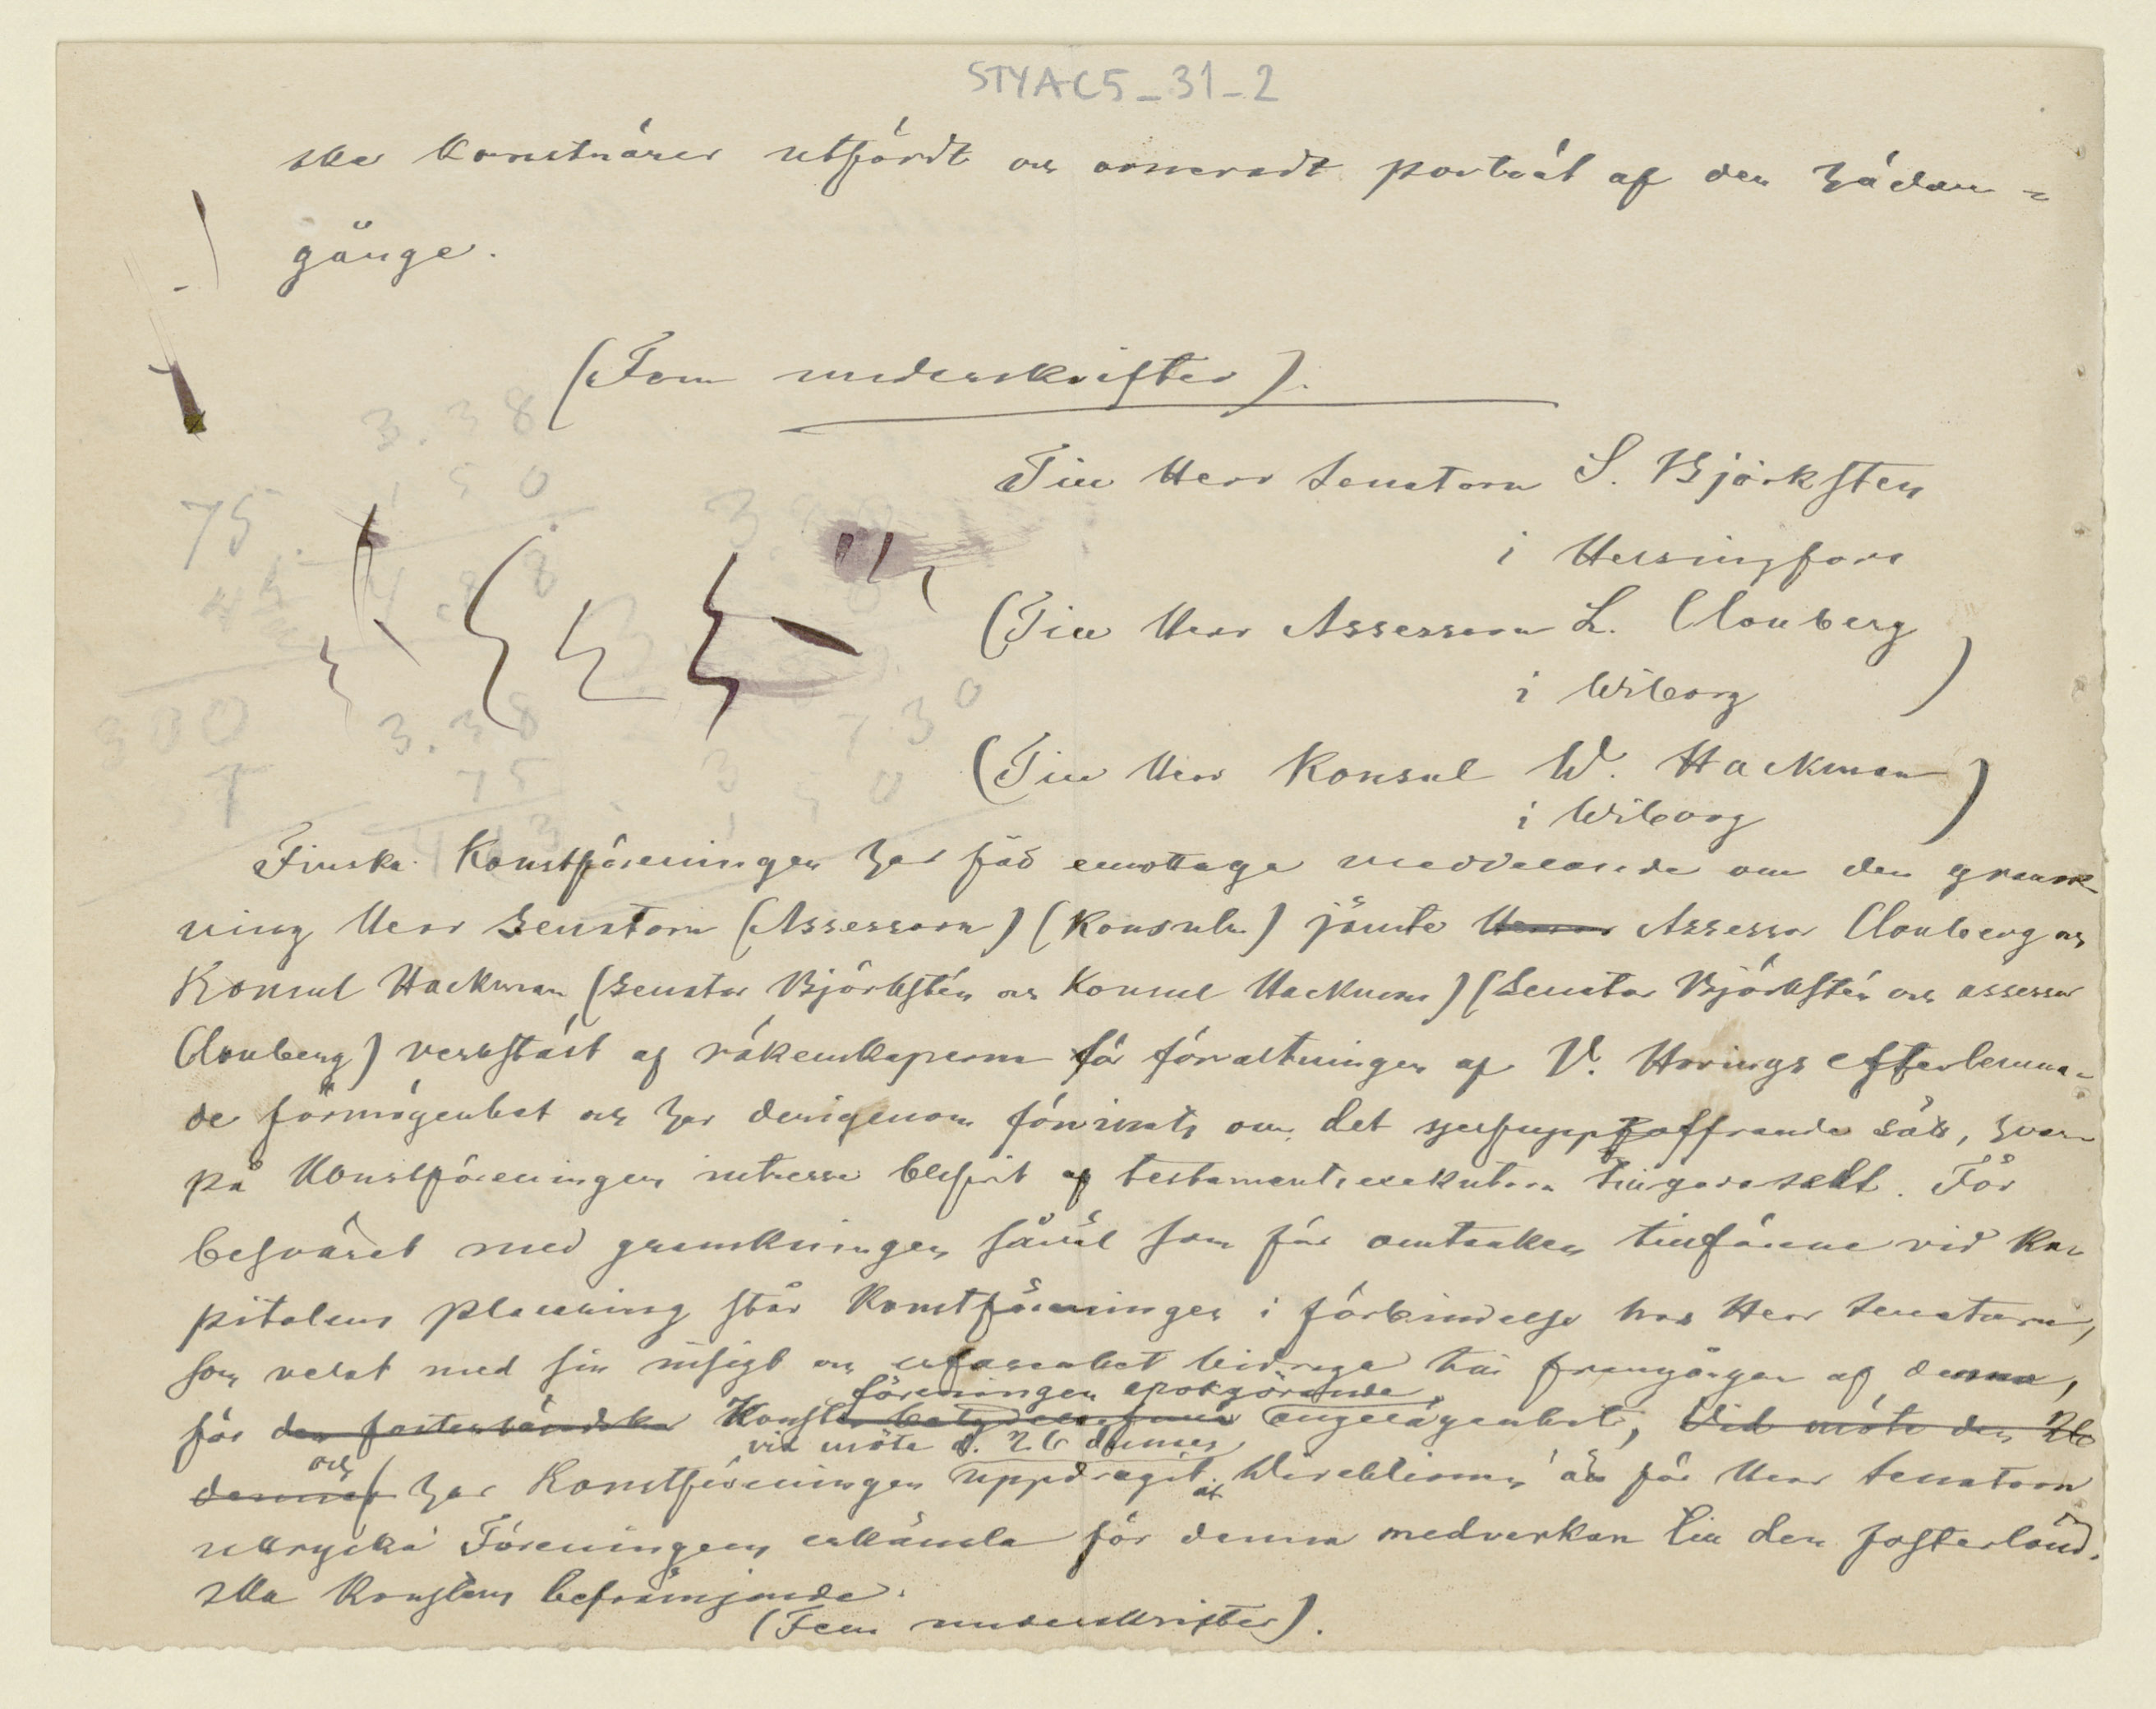 STYAC5_31_2
ska konstnärer utfördt och orneradt porträt af den hädan-
gångne.
(Fem underskrifter).
Till Herr Senatorn S. Björksten
i Helsingfors
(Till Herr Assessorn L. Clouberg
i Wiborg)
(Till Herr Konsul W. Hackman)
i Wiborg
3.38
1 50
75
4.88
300
7
3.38
75
7.30
Finska Konstföreningen har fått emottaga meddelande om den gransk-
ning Herr Senatorn (Assessorn) (Konsuln) jämte Herrar Assessor Clouberg och
Konsul Hackman (Senator Björkstén och Konsul Hackman) (Senator Björkstén och assessor
Clouberg) verkstält af räkenskaperna för förvaltningen af V. Hovings efterlemna-
de förmögenhet och har derigenom förvissats om det sjelfuppoffrande sätt, hvar-
på Konstföreningens intresse blifvit af testamentsexekutorn tillgodosedt. För
besväret med granskningen såväl som för omtanken tillförene vid ka-
pitalens placering står Konstföreningen i förbindelse hos Herr Senatorn,
som velat med sin insigt och erfarenhet bidraga till framgången af denna,
föreningen apotgörande
för den fosterländska Konsten betydelsefulla angelägenhet, Vid möte den 26
vid möte d. 26 dennes
och
dennes har Konstföreningen uppdragit at Direktionen att för Herr Senatorn
uttrycka Föreningens erkänsla för denna medverkan till den fosterländ-
ska konstens befrämjande.
(Fem underskrifter).